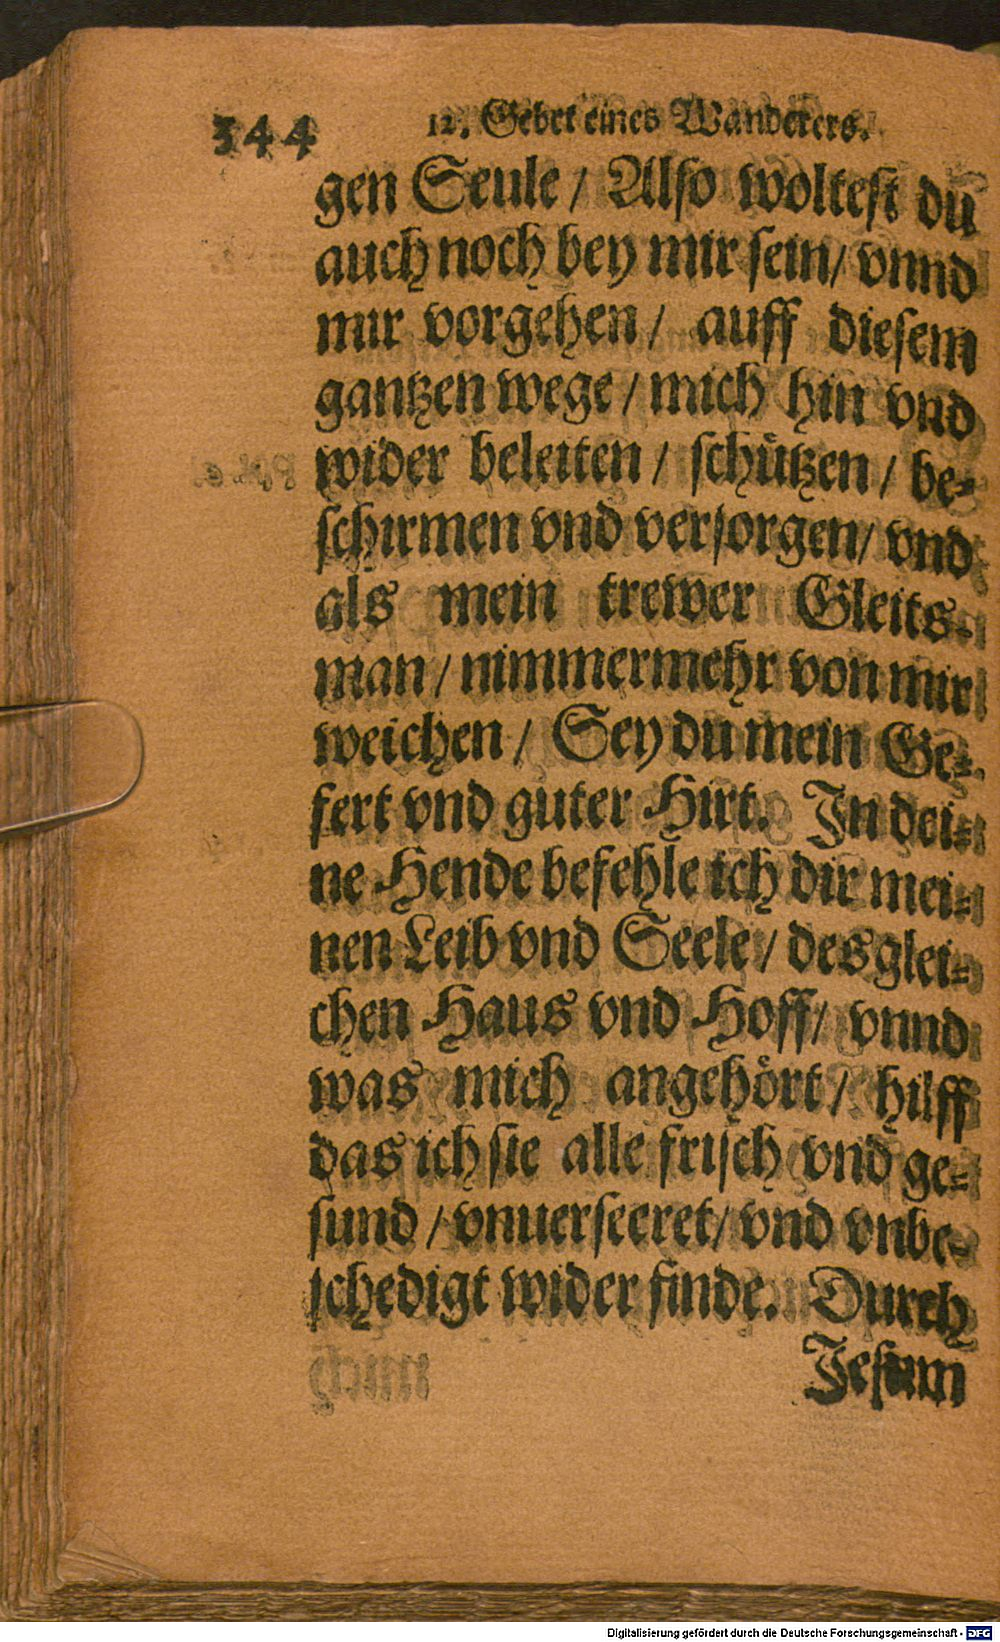 344
12. Gebet eines Wanderers.
gen Seule / Also woltest du
auch noch bey mir sein/ vnnd
mir vorgehen / auff diesem
gantzen wege / mich hin vnd
wider beleiten / schützen / be-
schirmen vnd versorgen/ vnd
als mein trewer Gleits-
man / nimmermehr von mir
weichen / Sey du mein Ge-
fert vnd guter Hirt. In dei-
ne Hende befehle ich dir mei-
nen Leib vnd Seele / des glei-
chen Haus vnd Hoff/ vnnd
was mich angehört / hilff
das ich sie alle frisch vnd ge-
sund / vnuerseeret/ vnd vnbe-
schedigt wider finde. Durch
Jesum
Digitalisierung gefördert durch die Deutsche Forschungsgemeinschaft - DFG